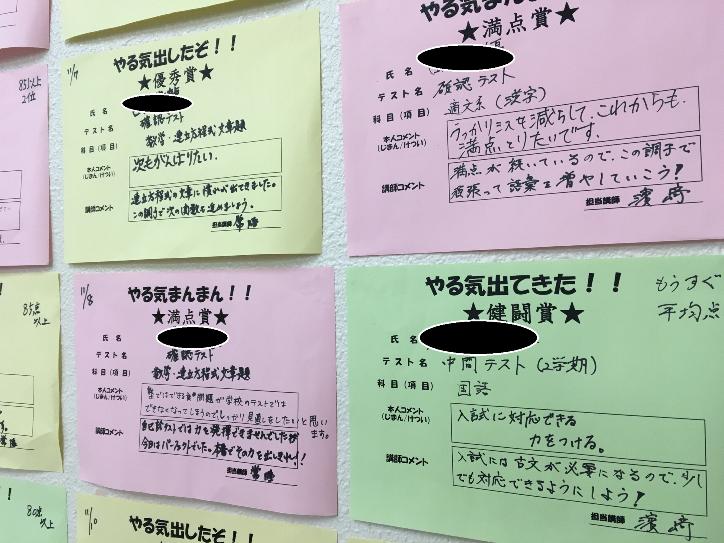 85点以上
2位
11/7
やる気出したぞ！！
★優秀賞★
氏名
テスト名 確認テスト
科目（項目） 数学・連立方程式文章題
本人コメント
（じまん/けつい）
次もがんばりたい。
講師コメント
連立方程式の文章に慣れが出てきました。
この調子で次の関数も進めましょう。
担当講師
やる気まん
★満点賞★
氏名
テスト名 確認テスト
科目（項目） 適文系（漢字）
本人コメント
（じまん/けつい）
うっかりミスを減らして、これからも
満点とりたいです。
講師コメント
満点が続いているので、この調子で
頑張って語彙を増やしていこう！
担当講師 濱﨑
85点
以上
11/8
やる気まんまん！！
★満点賞★
氏名
テスト名 確認テスト
科目（項目） 数学・連立方程式文章題
本人コメント
（じまん/けつい）
塾ではできる問題が学校のテストでは
できなくなってしまうのでしっかり見直しをしたいと思い
ます。
講師コメント
力を発揮できませんでしたが
今日はパーフェクトでした。本番でその力を出しきれ！
担当講師
やる気出てきた！！
★健闘賞★
もうすぐ
平均点
氏名
テスト名 中間テスト（2学期）
科目（項目） 国語
本人コメント
（じまん/けつい）
入試に対応できる
力をつける。
講師コメント
入試には古文が必要になるので、少し
でも対応できるようにしよう！
担当講師 濱﨑
80点
以上
11/10
やる気出したぞ！！